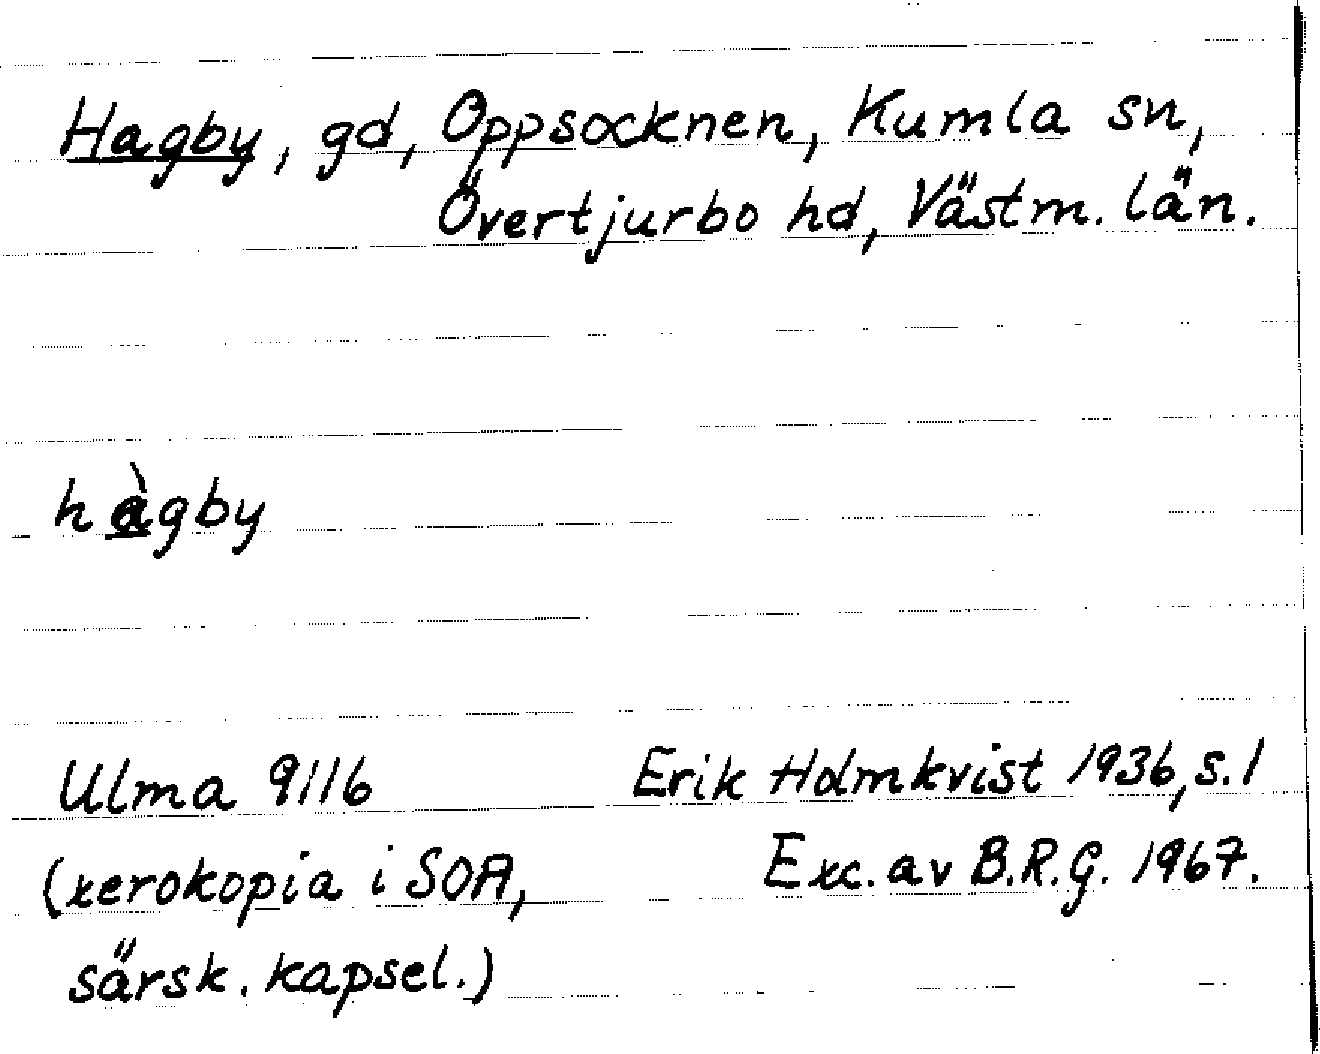 Hagby, gd, Oppsocknen, Kumla sn,
Övertjurbo hd, Västm. län.
hàgby
Ulma 9116 Erik Holmkvist 1936, s. 1
(xerokopia i SOA, Exc. av B.R.G. 1967.
särsk. kapsel.)